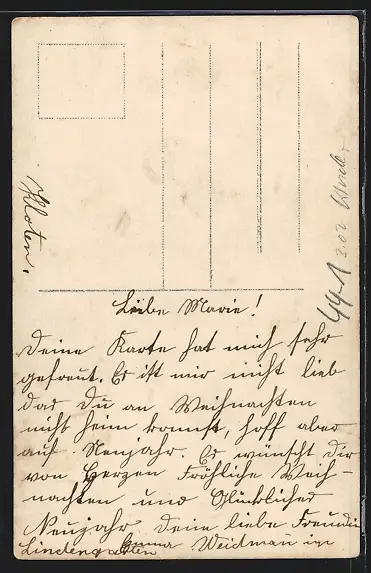 Kloten.
Liebe Marie!
Deine Karte hat mich sehr
gefreut. Es ist mir nicht lieb
das Du an Weihnachten
nicht heim komst, hoff aber
auf Neujahr. Es wünscht Dir
von Herzen Fröhliche Weih-
nachten und Glückliches
Neujahr Deine liebe Freundin
Emma Weidman in
Lindengarten
44-1